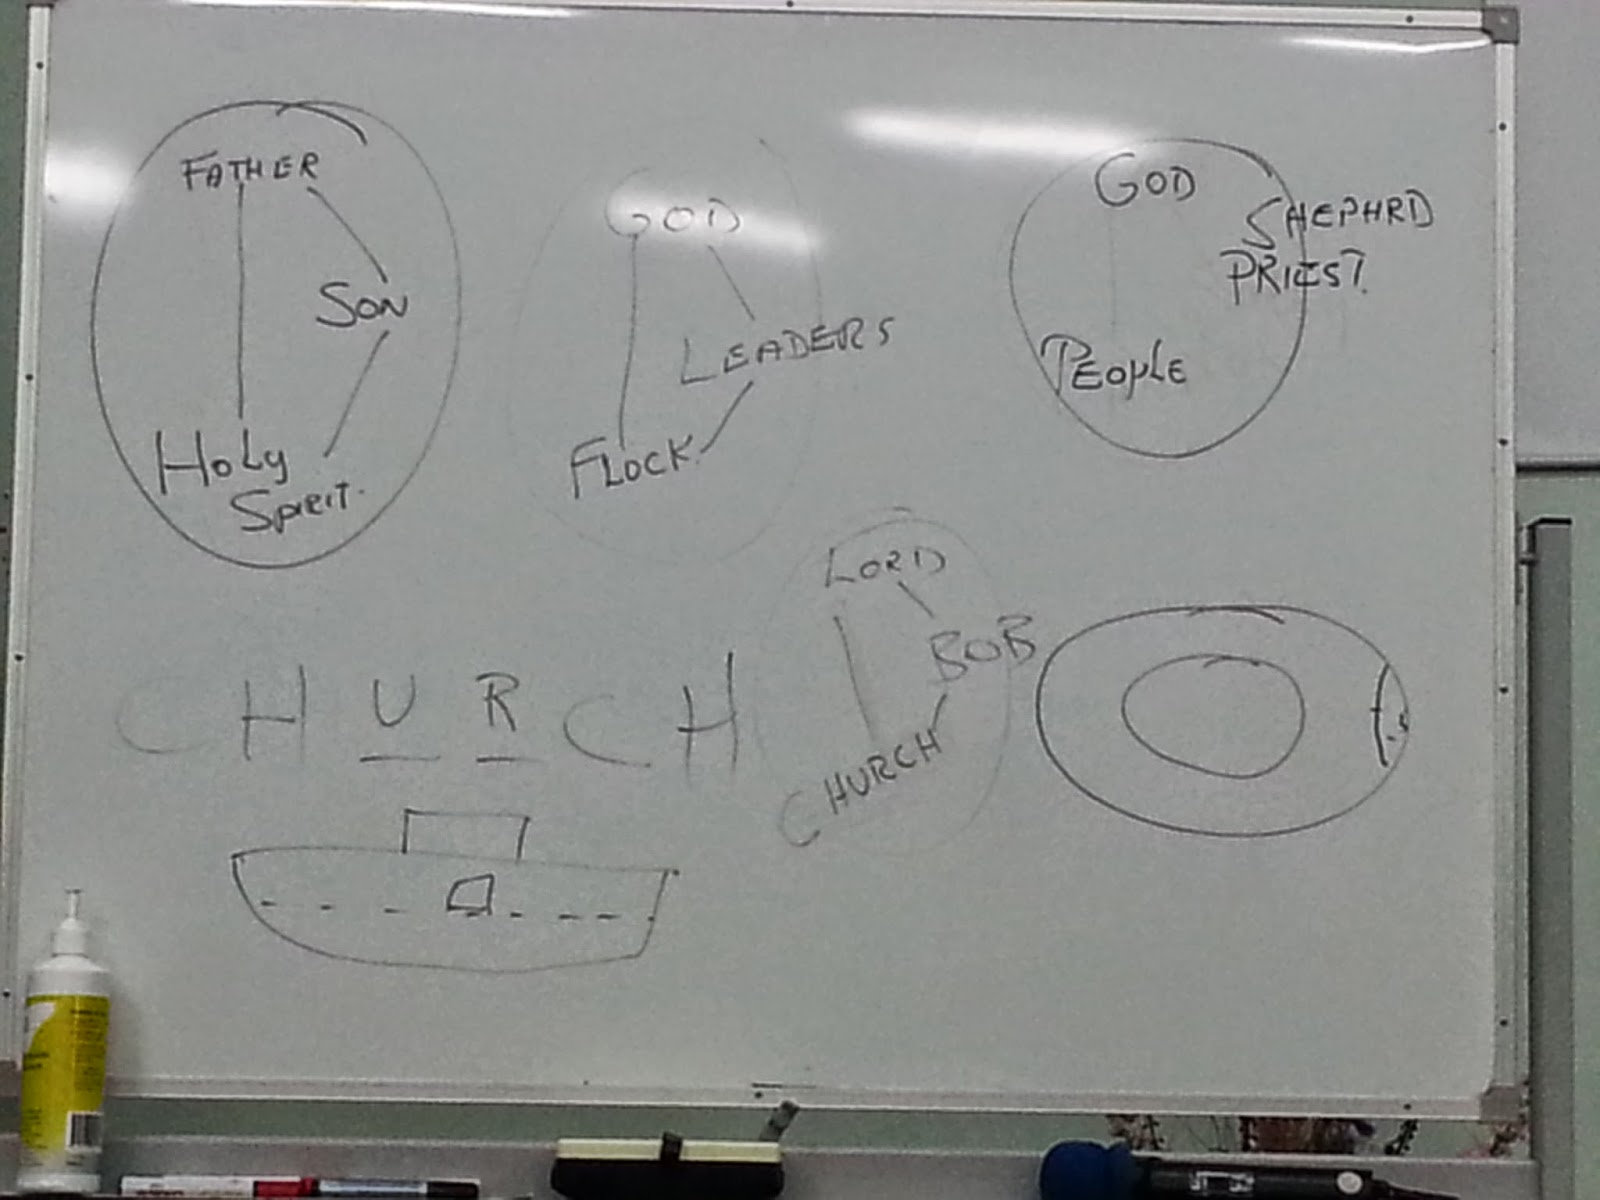 FATHER
SON
HOLY
SPIRIT.
GOD
LEADERS
FLOCK
GOD
SHEPHRD
PRIEST.
PEOPLE
LORD
BOB
CHURCH
CHURCH